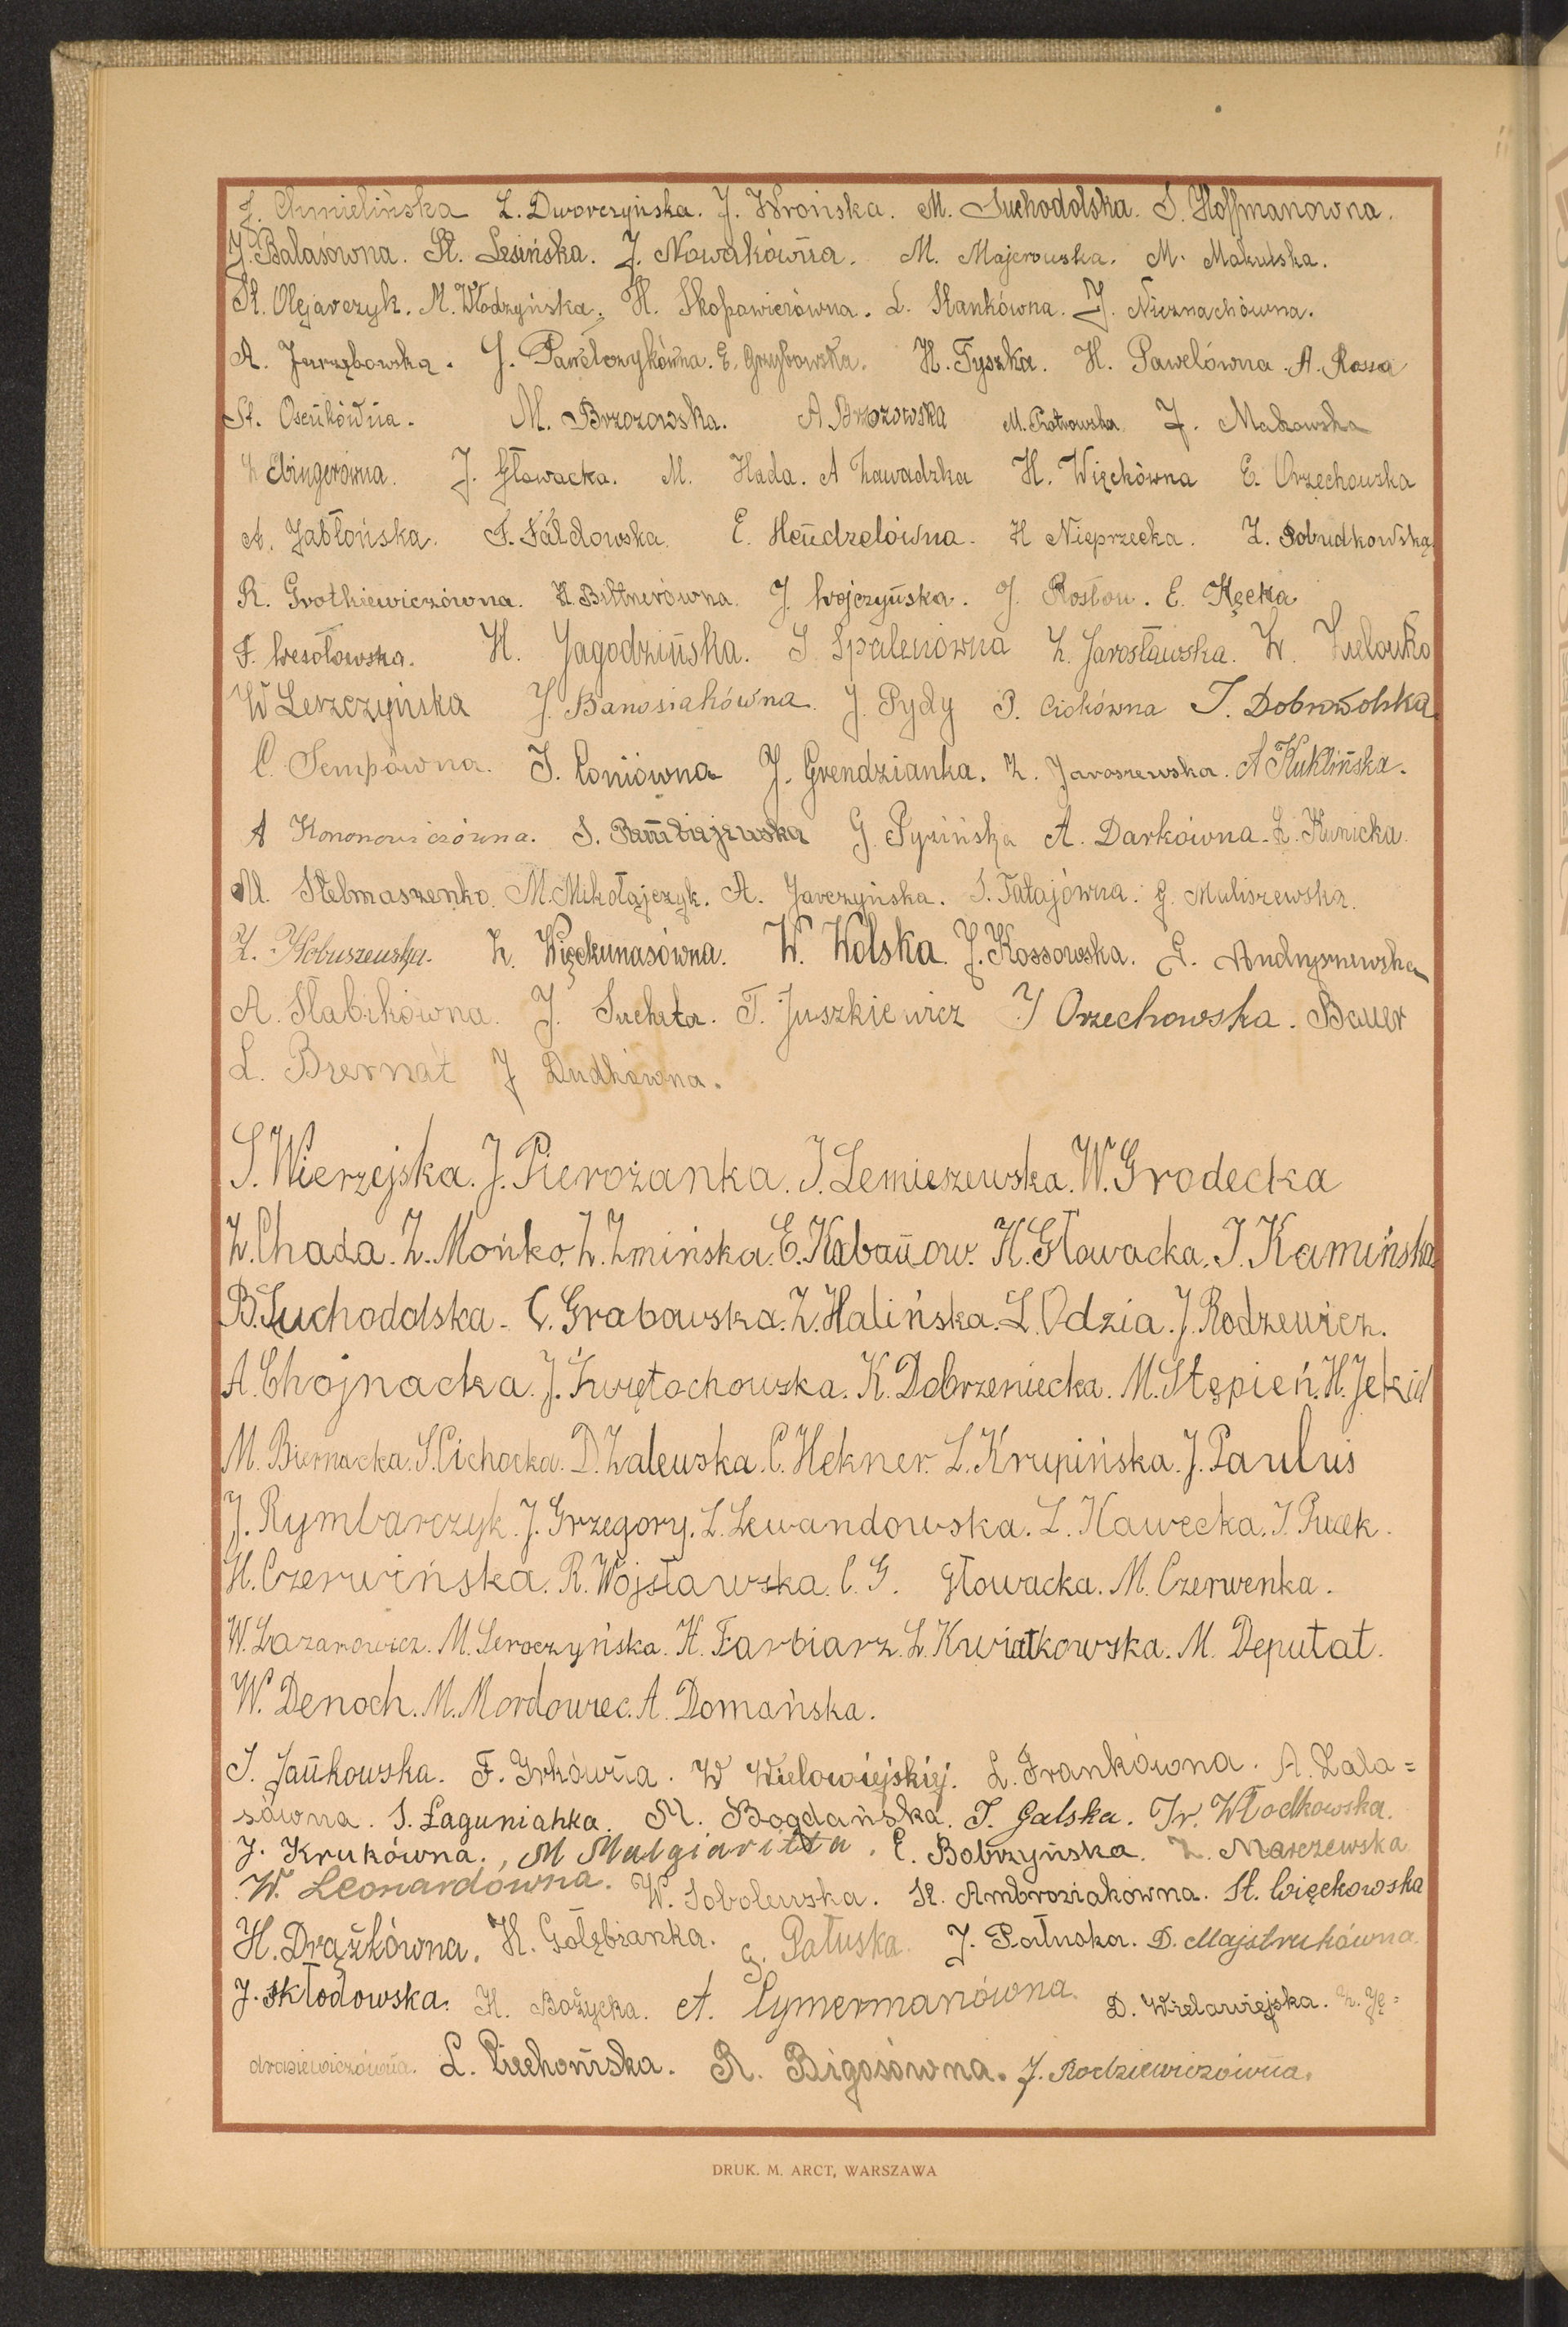 J. Chmielińska Z. Dworczyńska. J. Wrońska. M. Suchodolska. S. Hoffmanówna.
J. Balasówna. St. Lesińska. J. Nowakówna. M. Majerowska. M. Makulska.
St. Olejarczyk. M. Włodzyńska. H. Skopowiczówna. L. Stankówna. J. Nieznachówna.
A. Jarzębowska. J. Pawelczykówna. E. Grzybowska. H. Tyszka. H. Pawelówna. A. Rossa
St. Osenkówna. M. Brzozowska. A Brzozowska M. Piotrowska J. Makowska
Ebingerówna. J. Głowacka. M. Hada. A Zawadzka H. Więckówna E. Orzechowska
A. Jabłońska. F. Fałdowska. E. Hendzelówna. H Nieprzecka. Z. Pobudkowska
R. Grotkiewiczówna. H. Bittnerówna. J. Wojczyńska. J. Rosłon. E. Kęcka
F. Wesołowska. H. Jagodzińska. S Spalenówna Z. Jarosławska. W. Zielonko
W Leszczyńska J. Banasiakówna. J. Pydy P. Ciokówna T. Dobrowolska
C. Sempówna. J. Coniówna J. Grendzianka. Z. Jaroszewska. A Kuklińska.
A Kononowiczówna. S. G. Pyzińska A. Darkówna. Z. Kunicka.
M. Stelmaszenko. M. Mikołajczyk. A. Jarczyńska. S. Tałajówna. G. Maliszewska.
Z. Kobuszewska. Z. Więckunasówna. W. Wolska. J. Kossowska. G. Andrysz­ewska
A. Słabikówna. J. Suchta. T. Juszkiewicz J Orzechowska. Bauer
L. Biernat J Dudkówna.
S. Wierzejska. J. Pierożanka. J. Lemieszewska. W. Grodecka
Z. Chada. Z. Mońko. Z. Zmińska. E. Kabanow. H. Głowacka. J. Kamińska
B. Suchodolska. C. Grabowska. Z. Halińska. L. Odzia. J. Rodzewicz.
A. Chojnacka. J. Świętochowska. K. Dobrzeniecka. M. Stępień. H. Jekiel
M. Biernacka. S. Cichocka. D. Zalewska. C. Hekner. L. Krupińska. J. Paulus
J. Rymbarczyk. J. Grzegory. L. Lewandowska. L. Kawecka. J. Pucek.
H. Czerwińska. R. Wojsławska. C. G. Głowacka. M. Czerwenka.
W. Łazarowicz. M. Seroczyńska. H. Farbiarz. L. Kwiatkowska. M. Deputat.
W. Denoch. M. Mordowiec. A. Domańska.
J. Jankowska. F. Grkówna. W Wielowiejskiej. L. Frankówna. A. Zala=
sówna. S. Łaguniahka. M. Bogdańska. T. Galska. Ir. Włodkowska.
J. Krukówna., M Malgiaritta. E. Bobrzyńska. Z. Marczewska
W. Leonardówna. W. Sobolewska. St. Ambroziakówna. St. Więckowska
H. Drążkówna. H. Gołębianka. G. Pałuska. J. Pałuska. D. Majstrukówna.
J. Skłodowska. H. Bożycka. A. Cymermanówna. D. Wielowiejska. Z. Ję=
drasiewiczówna. L. Ciechomska. R. Bigosówna. J. Rodziewiczówna.
DRUK. M. ARCT, WARSZAWA